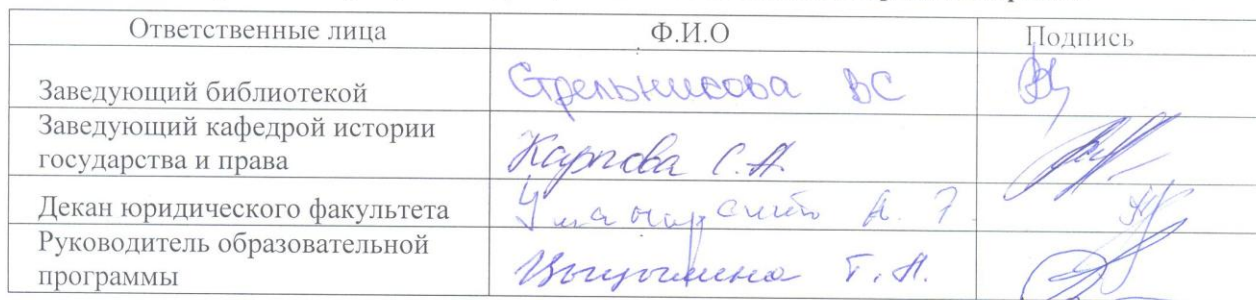 Ответственные лица Ф.И.О Подпись
Заведующий библиотекой Стрельникова ВС
Заведующий кафедрой истории
государства и права Карпова С.А.
Декан юридического факультета А.
Руководитель образовательной
программы Т.А.